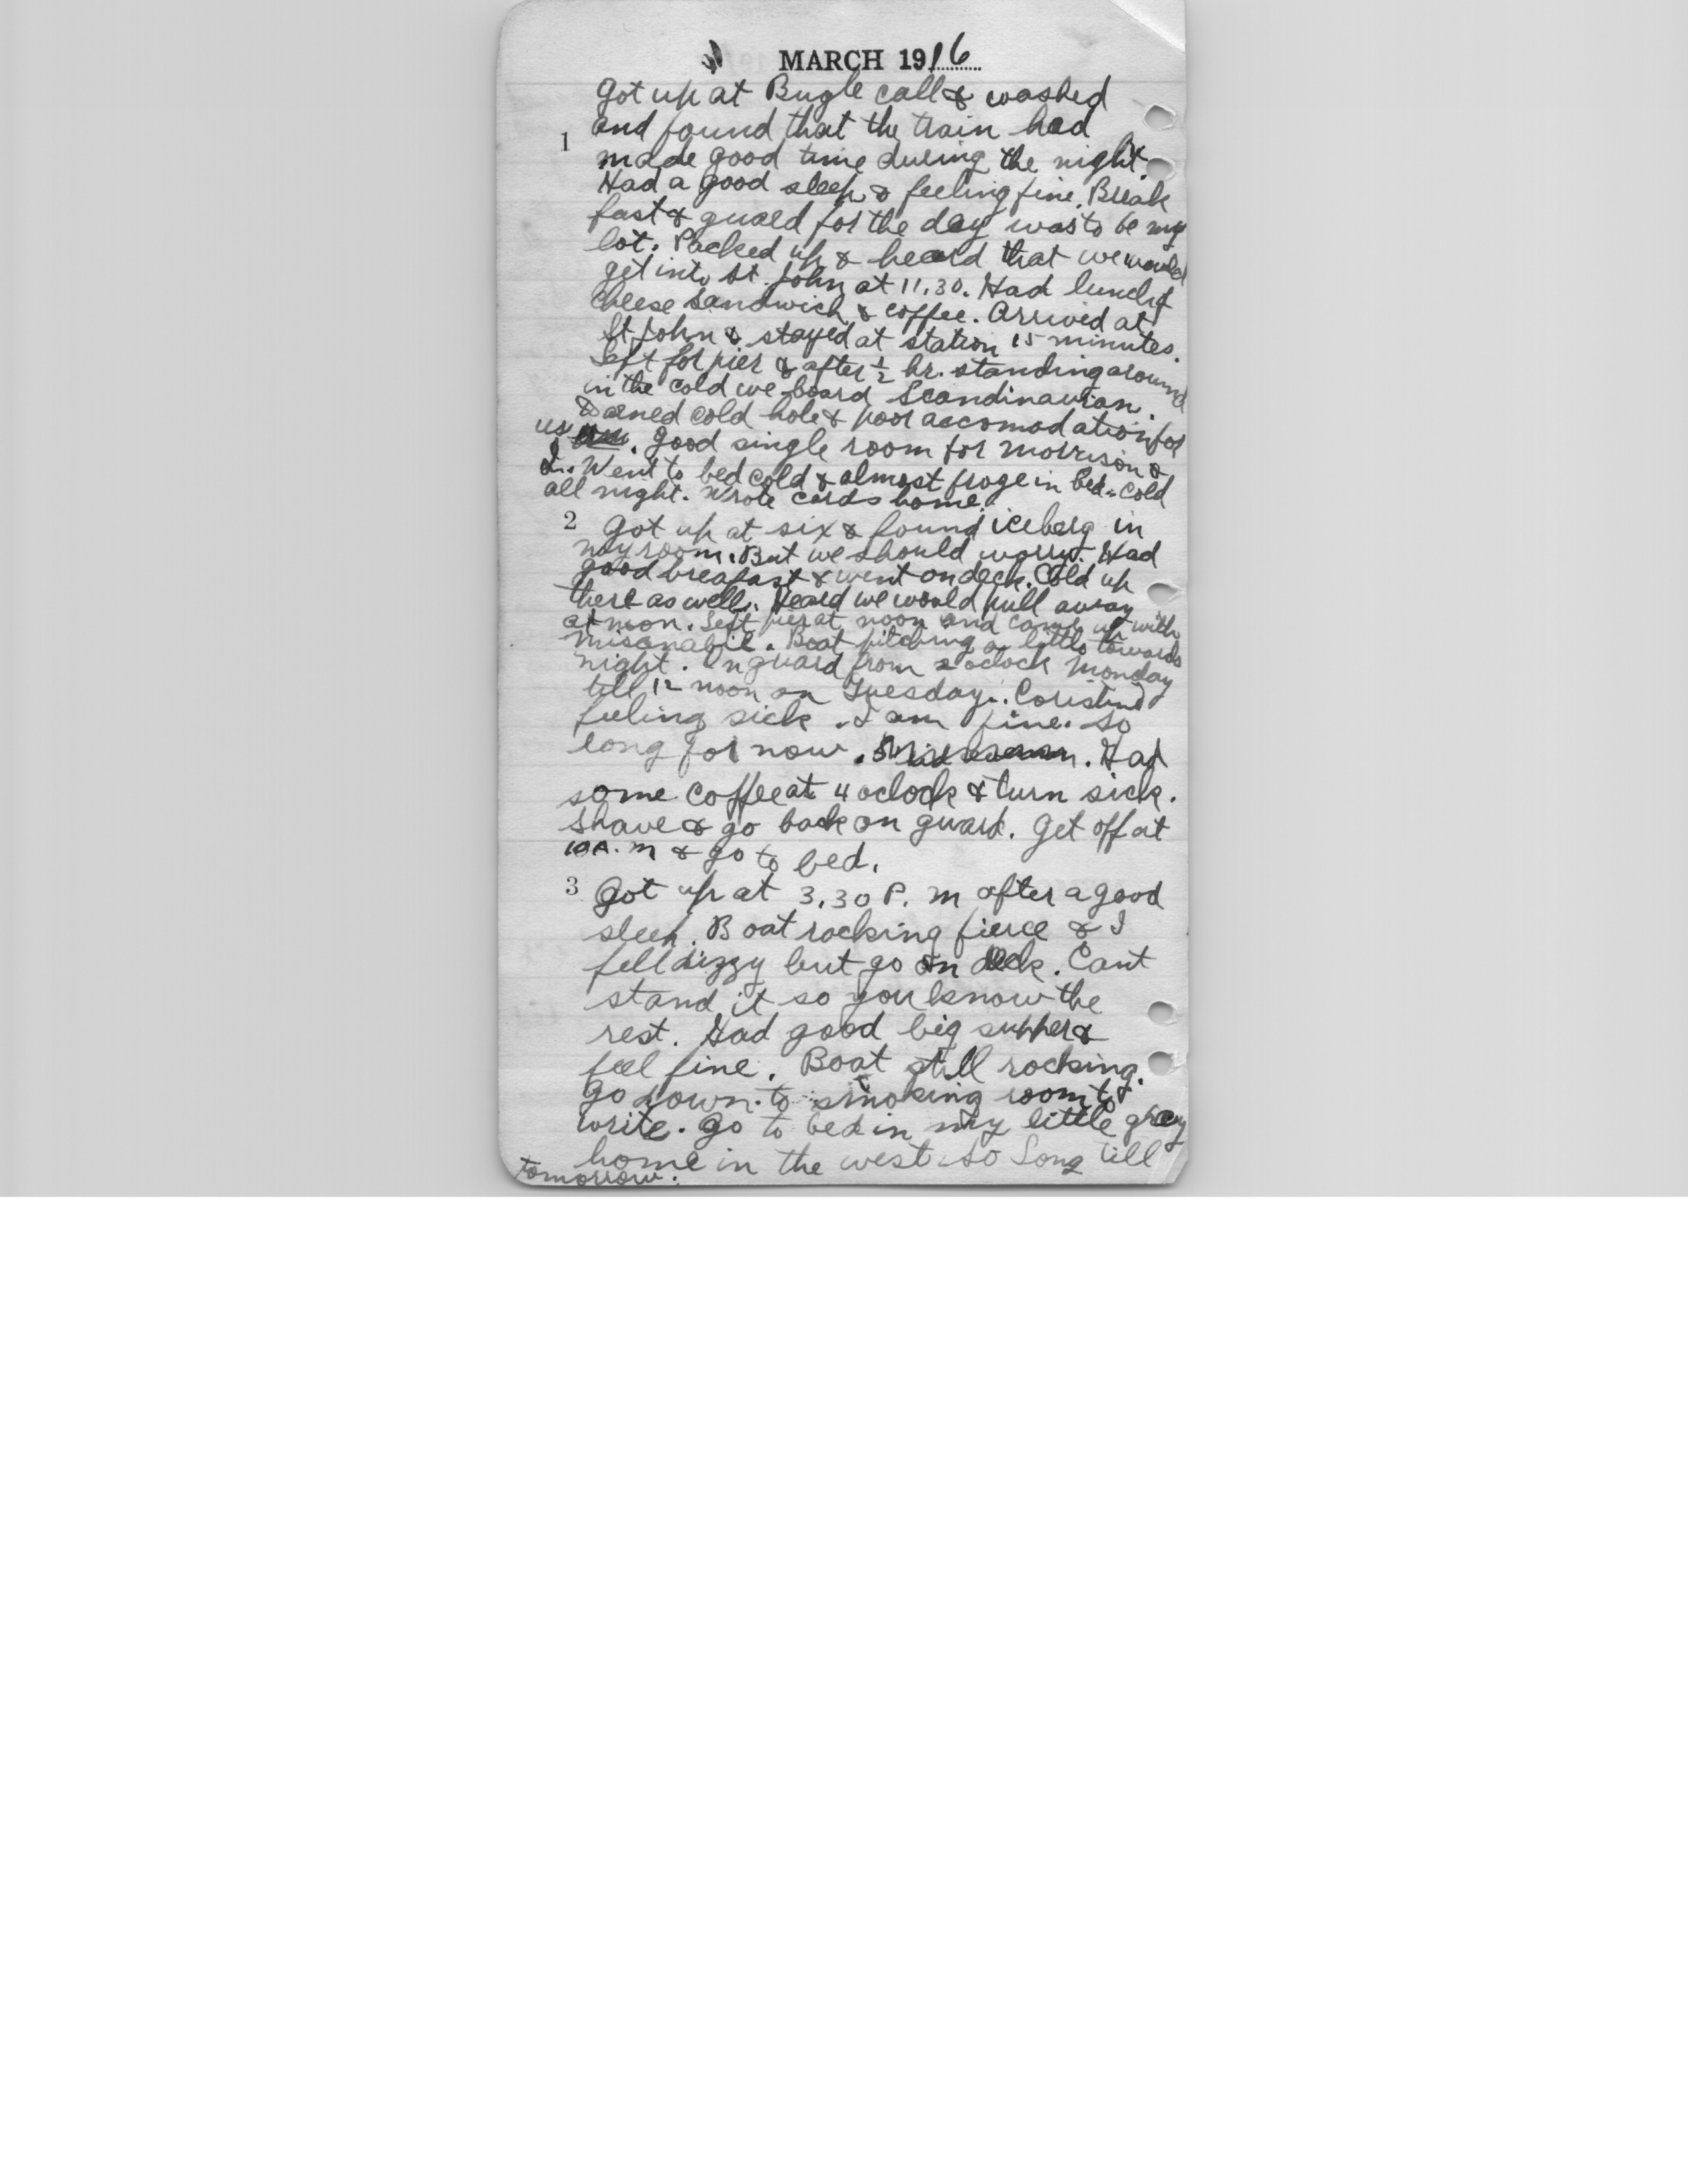 MARCH 1916
Got up at Bugle call & washed
1 and found that the train had
made good time during the night.
Had a good sleep & feeling fine. Break
fast & guard for the day was to be my
lot. Packed up & heard that we would
get into St. John at 11.30. Had lunch of
cheese sandwich & coffee. Arrived at
St John & stayed at station 15 minutes.
Left for pier & after ½ hr. standing around
in the cold we board Scandinavian.
Darned cold hole & poor accomodation for
us. Good single room for Morrison &
I. Went to bed cold & almost froze in bed. Cold
all night. Wrote cards home.
2 Got up at six & found iceberg in
my room. But we should worry. Had
good breafast & went on deck. Cold up
there as well. Heard we would pull away
at noon. Left pier at noon and came up with
Missanabie. Boat pitching a little towards
night. On guard from 2 oclock Monday
till 12 noon on Tuesday. Coristine
feeling sick. I am fine. So
long for now. Had
some coffee at 4 oclock & turn sick.
Shave & go back on guard. Get off at
10 A. m & go to bed.
3 Got up at 3.30 P. m after a good
sleep. Boat rocking fierce & I
fell dizzy but go on deck. Cant
stand it so you know the
rest. Had good big supper &
feel fine. Boat still rocking.
Go down to smoking room to
write. Go to bed in my little grey
home in the west. So Long till
tomorrow.